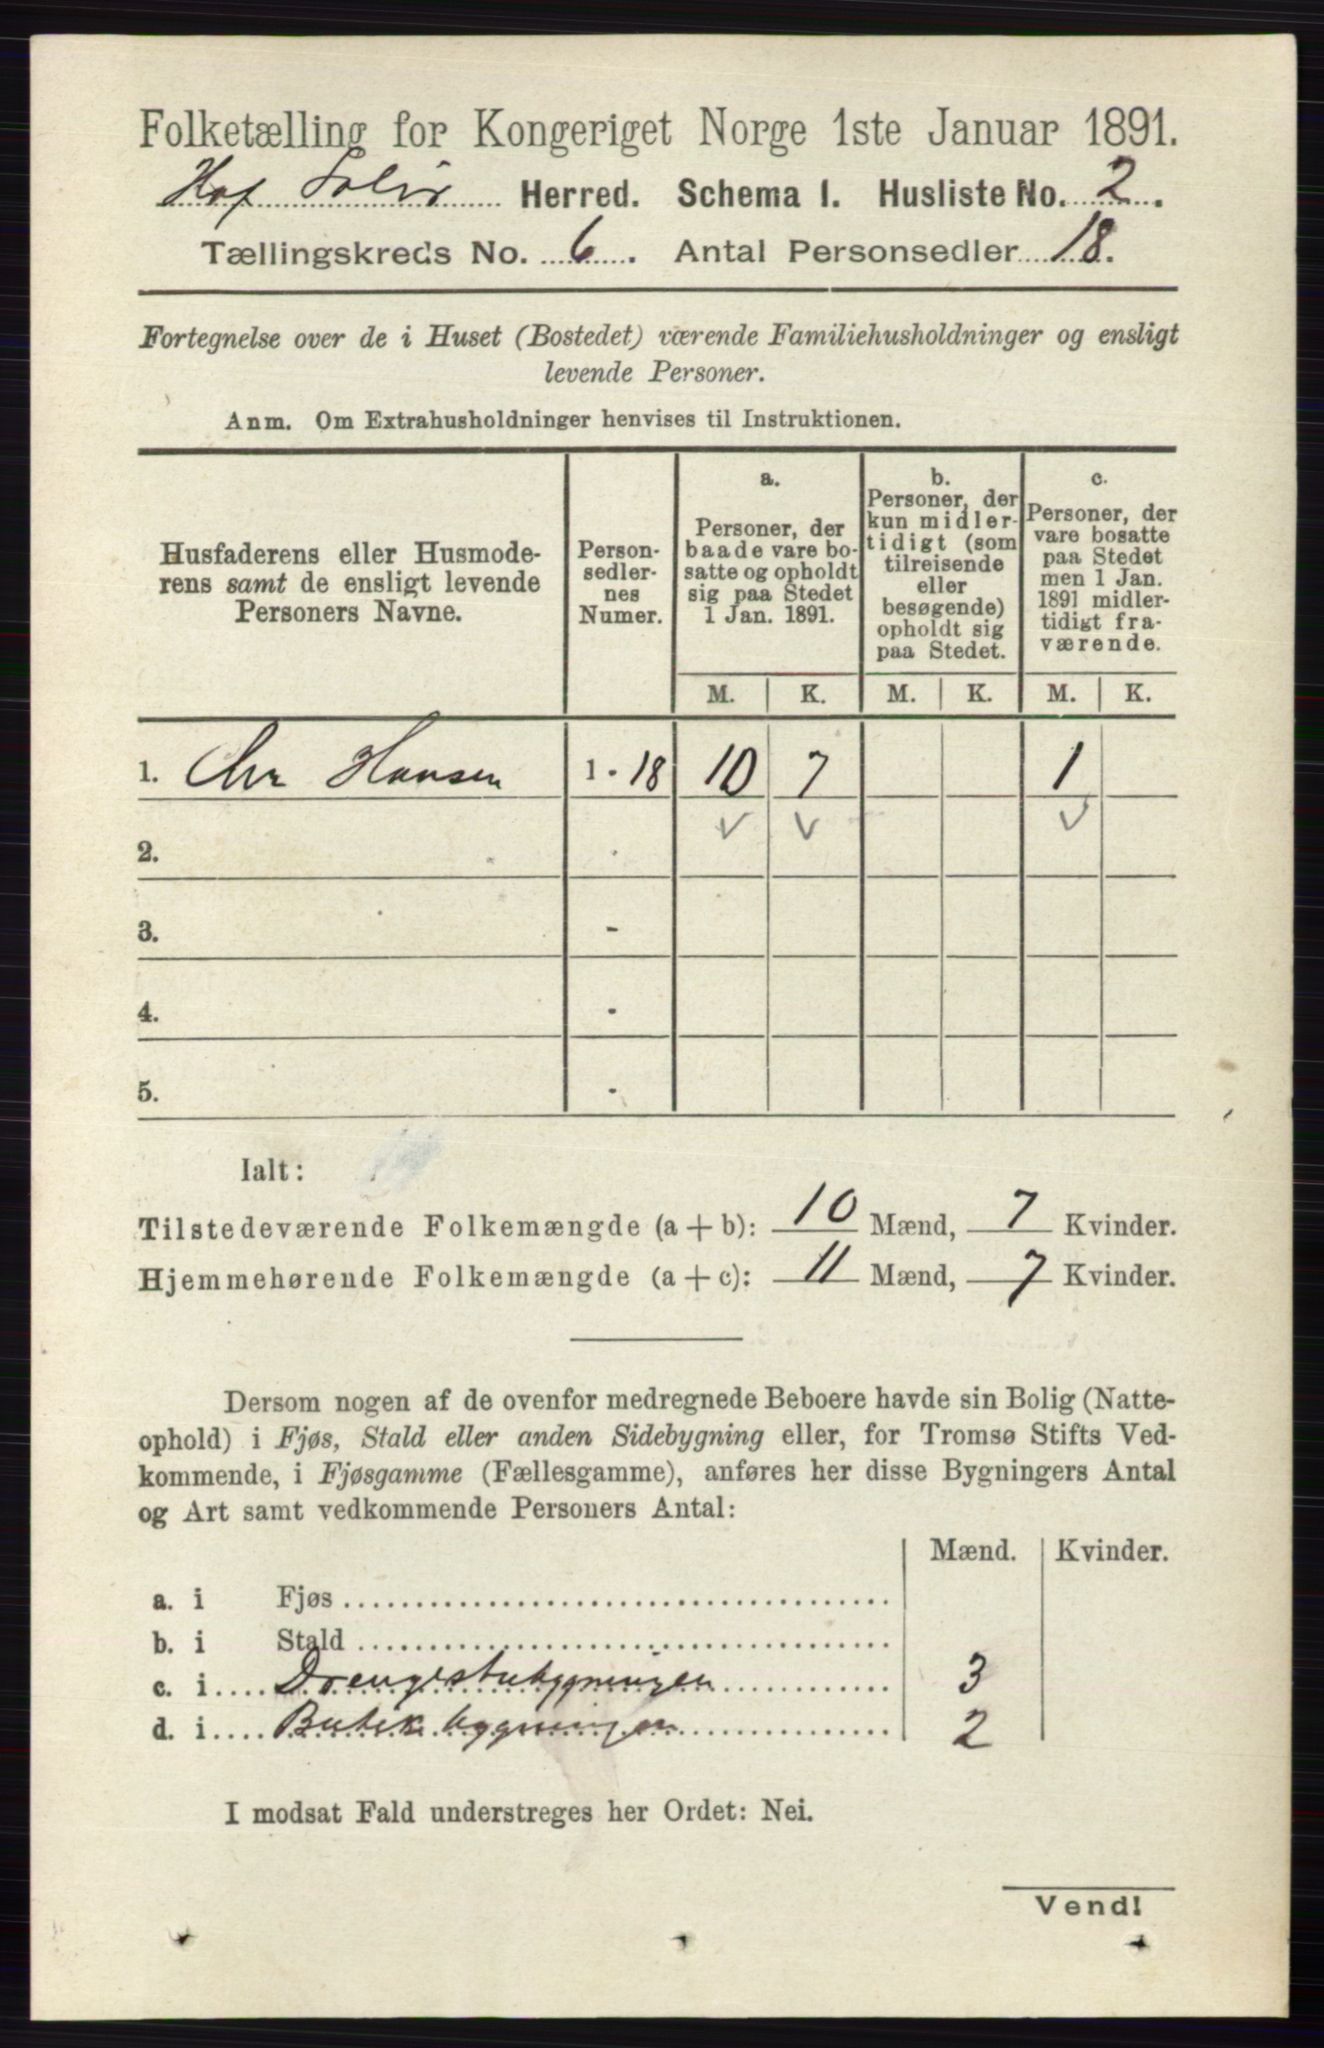 Folketælling for Kongeriget Norge 1ste Januar 1891.
Hof Solør Herred. Schema I. Husliste No. 2.
Tællingskreds No. 6. Antal Personsedler 18.
Fortegnelse over de i Huset (Bostedet) værende Familiehusholdninger og ensligt
levende Personer.
Anm. Om Extrahusholdninger henvises til Instruktionen.
Husfaderens eller Husmode-
rens samt de ensligt levende
Personers Navne.
Person-
sedler-
nes
Numer.
a.
Personer, der
baade vare bo-
satte og opholdt
sig paa Stedet
1 Jan. 1891.
b.
Personer, der
kun midler-
tidigt (som
tilreisende
eller
besøgende)
opholdt sig
paa Stedet.
c.
Personer, der
vare bosatte
paa Stedet
men 1 Jan.
1891 midler-
tidigt fra-
værende.
M. K. M. K. M. K.
1. Chr Hansen 1 - 18 10 7 1
2.
3. -
4. -
5. -
Ialt:
Tilstedeværende Folkemængde (a + b): 10 Mænd, 7 Kvinder.
Hjemmehørende Folkemængde (a + c): 11 Mænd, 7 Kvinder.
Dersom nogen af de ovenfor medregnede Beboere havde sin Bolig (Natte-
ophold) i Fjøs, Stald eller anden Sidebygning eller, for Tromsø Stifts Ved-
kommende, i Fjøsgamme (Fællesgamme), anføres her disse Bygningers Antal
og Art samt vedkommende Personers Antal:
Mænd. Kvinder.
a. i Fjøs
b. i Stald
c. i Drengestubygningen 3
d. i Butikbygningen 2
I modsat Fald understreges her Ordet: Nei.
Vend!